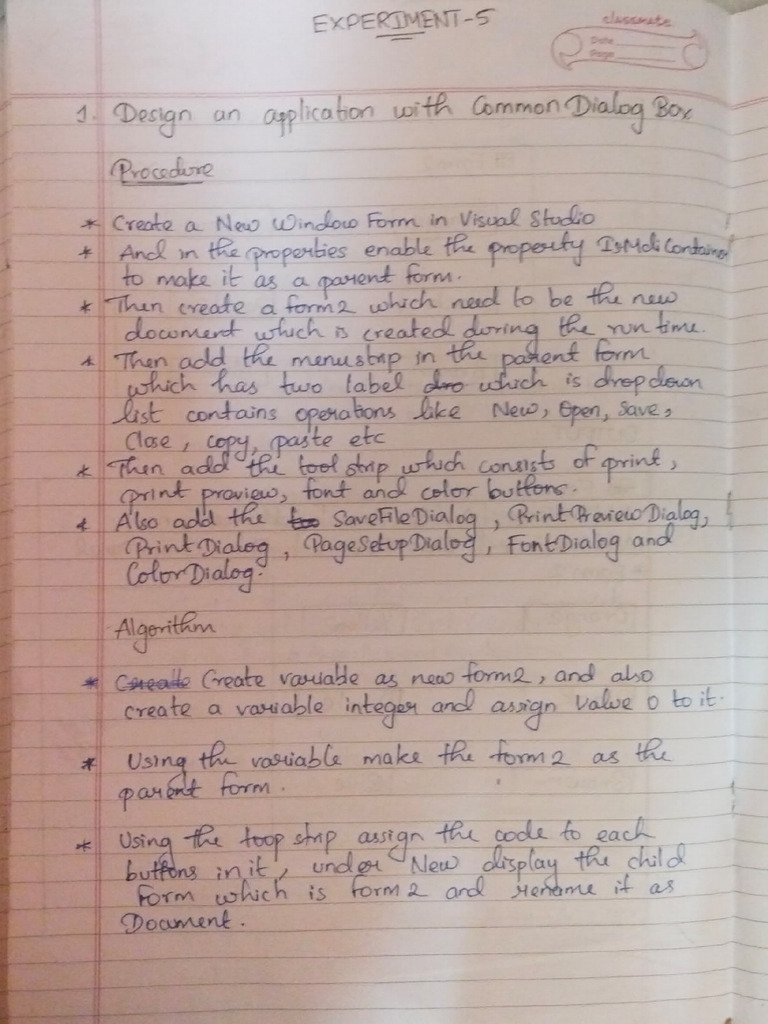 EXPERIMENT-5
classmate
Date
Page
1. Design an application with Common Dialog Box
Procedure
* Create a New Window Form in Visual Studio
* And in the properties enable the property IsMdiContainer
to make it as a parent form.
* Then create a form2 which need to be the new
document which is created during the run time.
* Then add the menustrip in the parent form
which has two label which is dropdown
list contains operations like New, Open, Save,
Close, copy, paste etc
* Then add the tool strip which consists of print,
print preview, font and color buttons.
* Also add the SaveFileDialog, PrintPreviewDialog,
PrintDialog, PageSetupDialog, FontDialog and
ColorDialog.
Algorithm
* Create variable as new form2, and also
create a variable integer and assign value 0 to it.
* Using the variable make the form2 as the
parent form.
* Using the toop strip assign the code to each
buttons in it, under New display the child
form which is form2 and rename it as
Document.